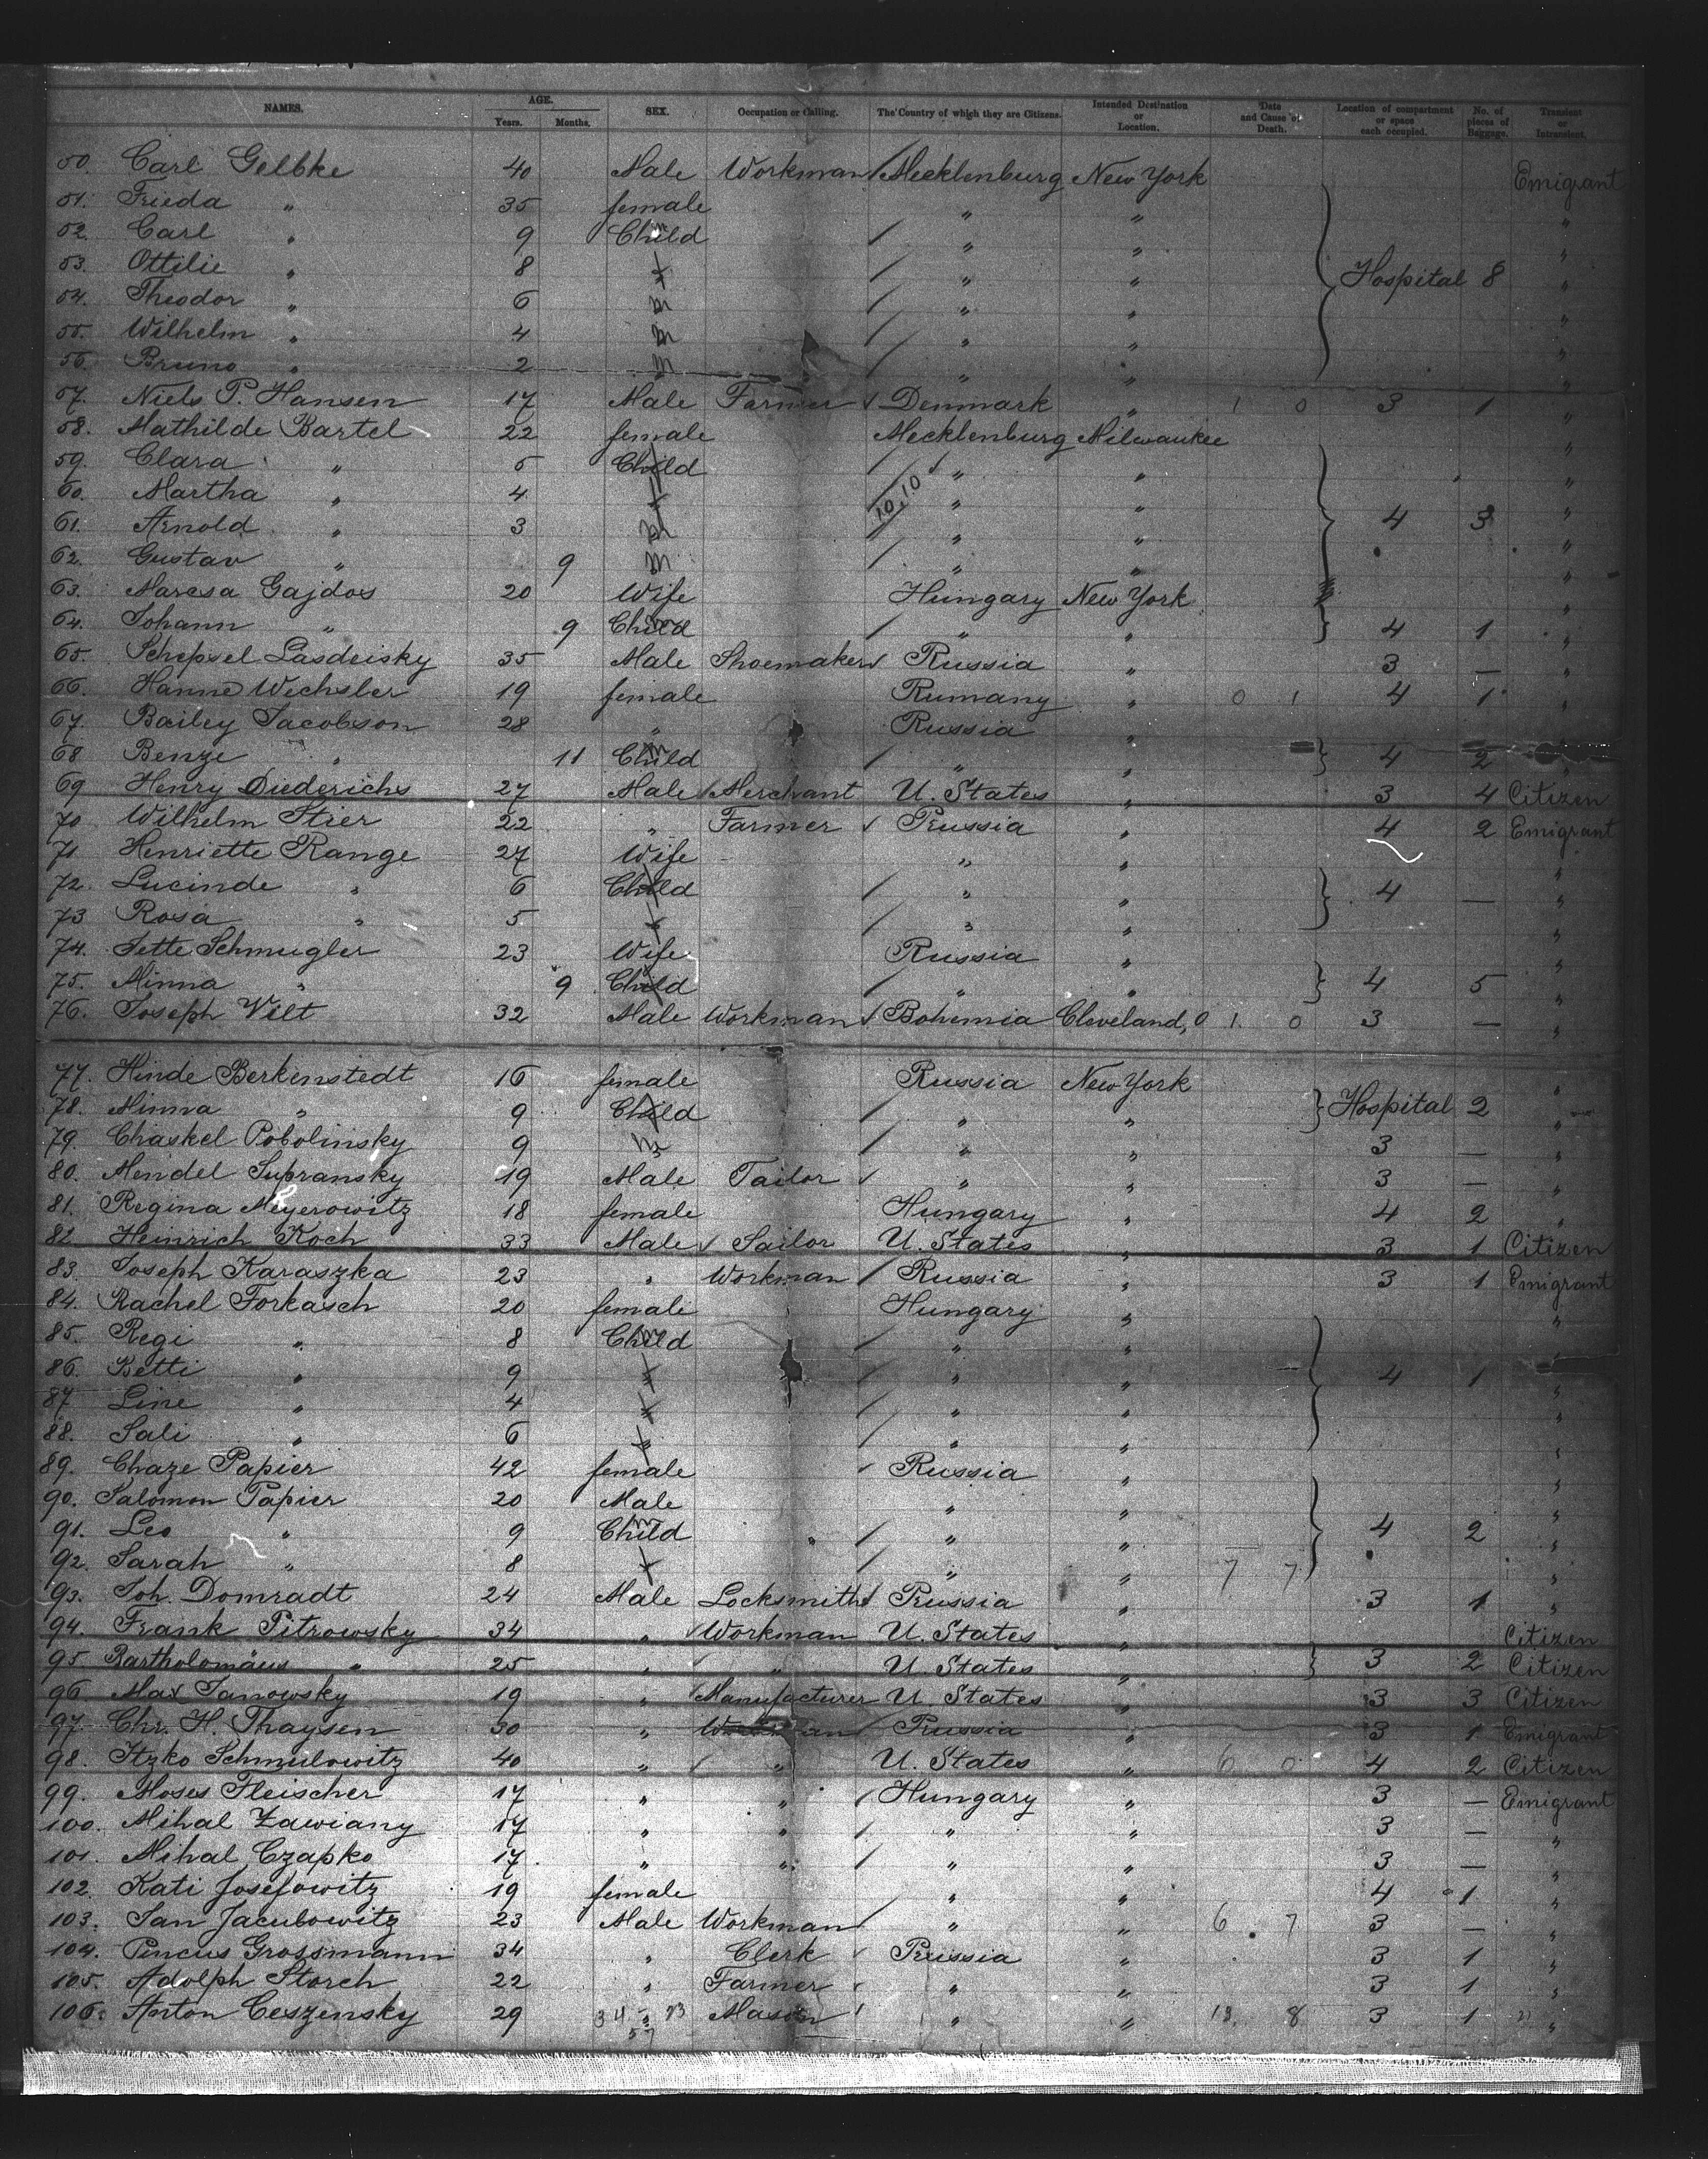 NAMES. AGE. Years. Months. SEX. Occupation or Calling. The Country of which they are Citizens. Intended Destination or Location. Date and Cause of Death. Location of compartment or space each occupied. No. of pieces of Baggage. Transient or Intransient.
50. Carl Gelbke 40 Male Workman Mecklenburg New York Emigrant
51. Frieda " 35 female " " "
52. Carl " 9 Child m " " "
53. Ottilie " 8 f " " Hospital 8 "
54. Theodor " 6 m " " "
55. Wilhelm " 4 m " " "
56. Bruno " 2 m " " "
57. Niels P. Hansen 17 Male Farmer Denmark " 1 0 3 1 "
58. Mathilde Bartel 22 female Mecklenburg Milwaukee "
59. Clara " 5 Child f " " "
60. Martha " 4 f 10,10 " " "
61. Arnold " 3 m " " 4 3 "
62. Gustav " 9 m " " "
63. Maresa Gajdos 20 Wife Hungary New York "
64. Johann " 9 Child m " " 4 1 "
65. Schepsel Lasdeisky 35 Male Shoemaker Russia " 3 — "
66. Hanne Wechsler 19 female Rumany " 0 1 4 1 "
67. Bailey Jacobson 28 " Russia " "
68 Benze " 11 Child m " " 4 2 "
69 Henry Diederichs 27 Male Merchant U. States " 3 4 Citizen
70 Wilhelm Stier 22 " Farmer Prussia " 4 2 Emigrant
71 Henriette Range 27 Wife " " "
72. Lucinde " 6 Child f " " 4 — "
73 Rosa " 5 f " " "
74. Jette Schmugler 23 Wife Russia " "
75. Minna " 9 Child f " " 4 5 "
76. Joseph Vilt 32 Male Workman Bohemia Cleveland, O 1 0 3 — "
77. Hinde Berkenstedt 16 female Russia New York "
78. Minna " 9 Child f " " Hospital 2 "
79. Chaskel Pobolinsky 9 m " " 3 — "
80. Mendel Supransky 19 Male Tailor " " 3 — "
81. Regina Meyerowitz 18 female Hungary " 4 2 "
82 Heinrich Koch 33 Male Sailor U. States " 3 1 Citizen
83. Joseph Karaszka 23 " Workman Russia " 3 1 Emigrant
84. Rachel Forkasch 20 female Hungary " "
85. Regi " 8 Child m " " "
86. Betti " 9 f " " 4 1 "
87 Line " 4 f " " "
88. Sali " 6 f " " "
89. Chaze Papier 42 female Russia " "
90. Salomon Papier 20 Male " " "
91. Leo " 9 Child m " " 4 2 "
92. Sarah " 8 f " " 7 7 "
93. Joh. Domradt 24 Male Locksmith Prussia " 3 1 "
94. Frank Pitrowsky 34 " Workman U. States " Citizen
95 Bartholomäus " 25 " " U. States " 3 2 Citizen
96 Max Janowsky 19 " Manufacturer U. States " 3 3 Citizen
97. Chr. H. Thaysen 30 " Workman Prussia " 3 1 Emigrant
98. Itzko Schmulowitz 40 " " U. States " 6 0 4 2 Citizen
99. Moses Fleischer 17 " " Hungary " 3 — Emigrant
100. Mihal Zawiany 17 " " " " 3 — "
101. Mihal Czapko 17. " " " " 3 — "
102. Kati Josefowitz 19 female " " 4 1 "
103. Jan Jacubowitz 23 Male Workman " " 6 7 3 — "
104. Pincus Grossmann 34 " Clerk Prussia " 3 1 "
105. Adolph Storch 22 " Farmer " " 3 1 "
106. Anton Ceszensky 29 34 " 23 Mason " " 13 8 3 1 "
57